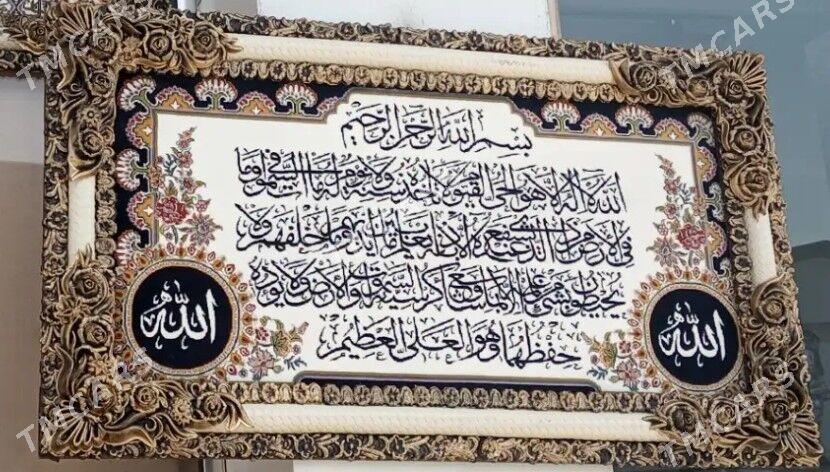 بسم الله الرحمن الرحيم
الله لا إله إلا هو الحي القيوم لا تأخذه سنة ولا نوم له ما في السموات وما
في الأرض من ذا الذي يشفع عنده إلا بإذنه يعلم ما بين أيديهم وما خلفهم ولا
يحيطون بشيء من علمه إلا بما شاء وسع كرسيه السموات والأرض ولا يؤده
حفظهما وهو العلي العظيم
الله
الله
TMCARS
TMCARS
TMCARS
TMCARS
TMCARS